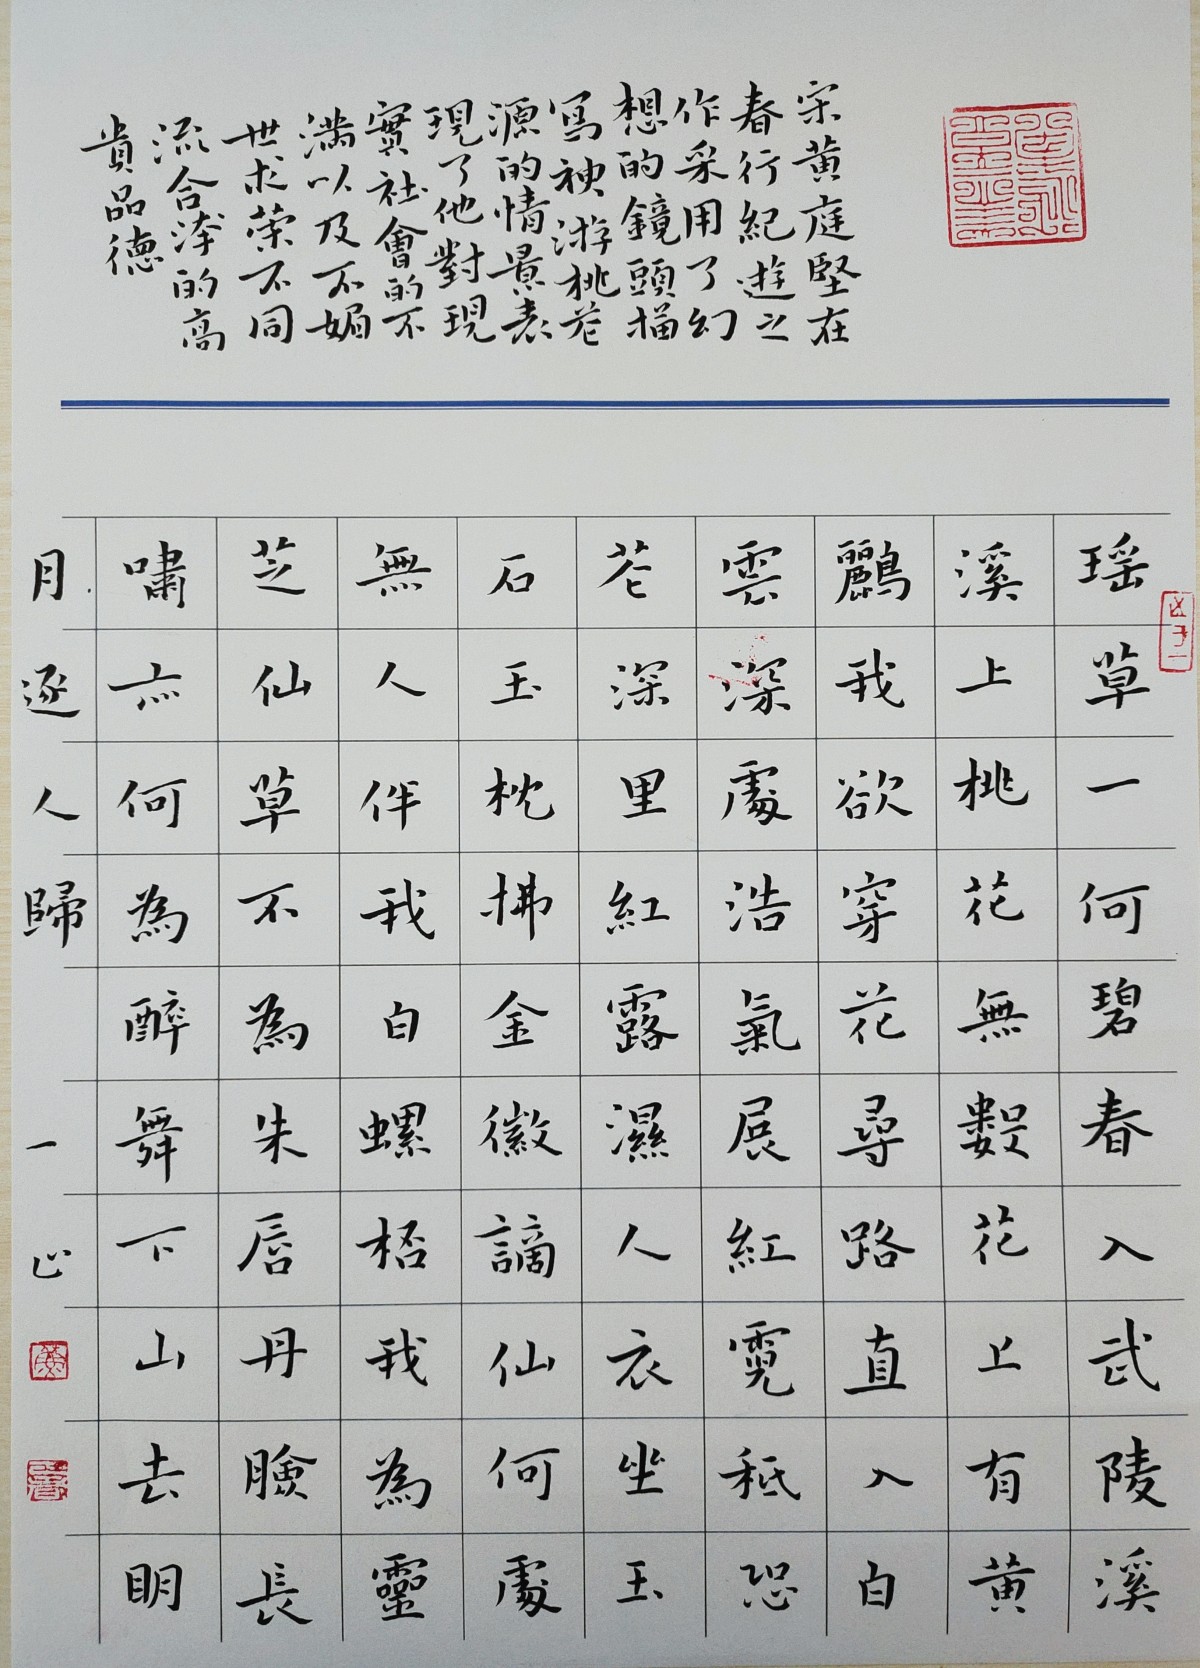 宋黄庭堅在
春行紀遊之
作采用了幻
想的鏡頭描
寫神游桃花
源的情景表
現了他對現
實社會的不
满以及不媚
世求荣不同
流合洿的高
貴品德
瑶草一何碧春入武陵溪
溪上桃花無數花上有黄
鸝我欲穿花尋路直入白
雲深處浩氣展紅霓秖恐
花深里紅露濕人衣坐玉
石玉枕拂金徽謫仙何處
無人伴我白螺桮我為靈
芝仙草不為朱唇丹臉長
嘯亦何為醉舞下山去明
月逐人歸